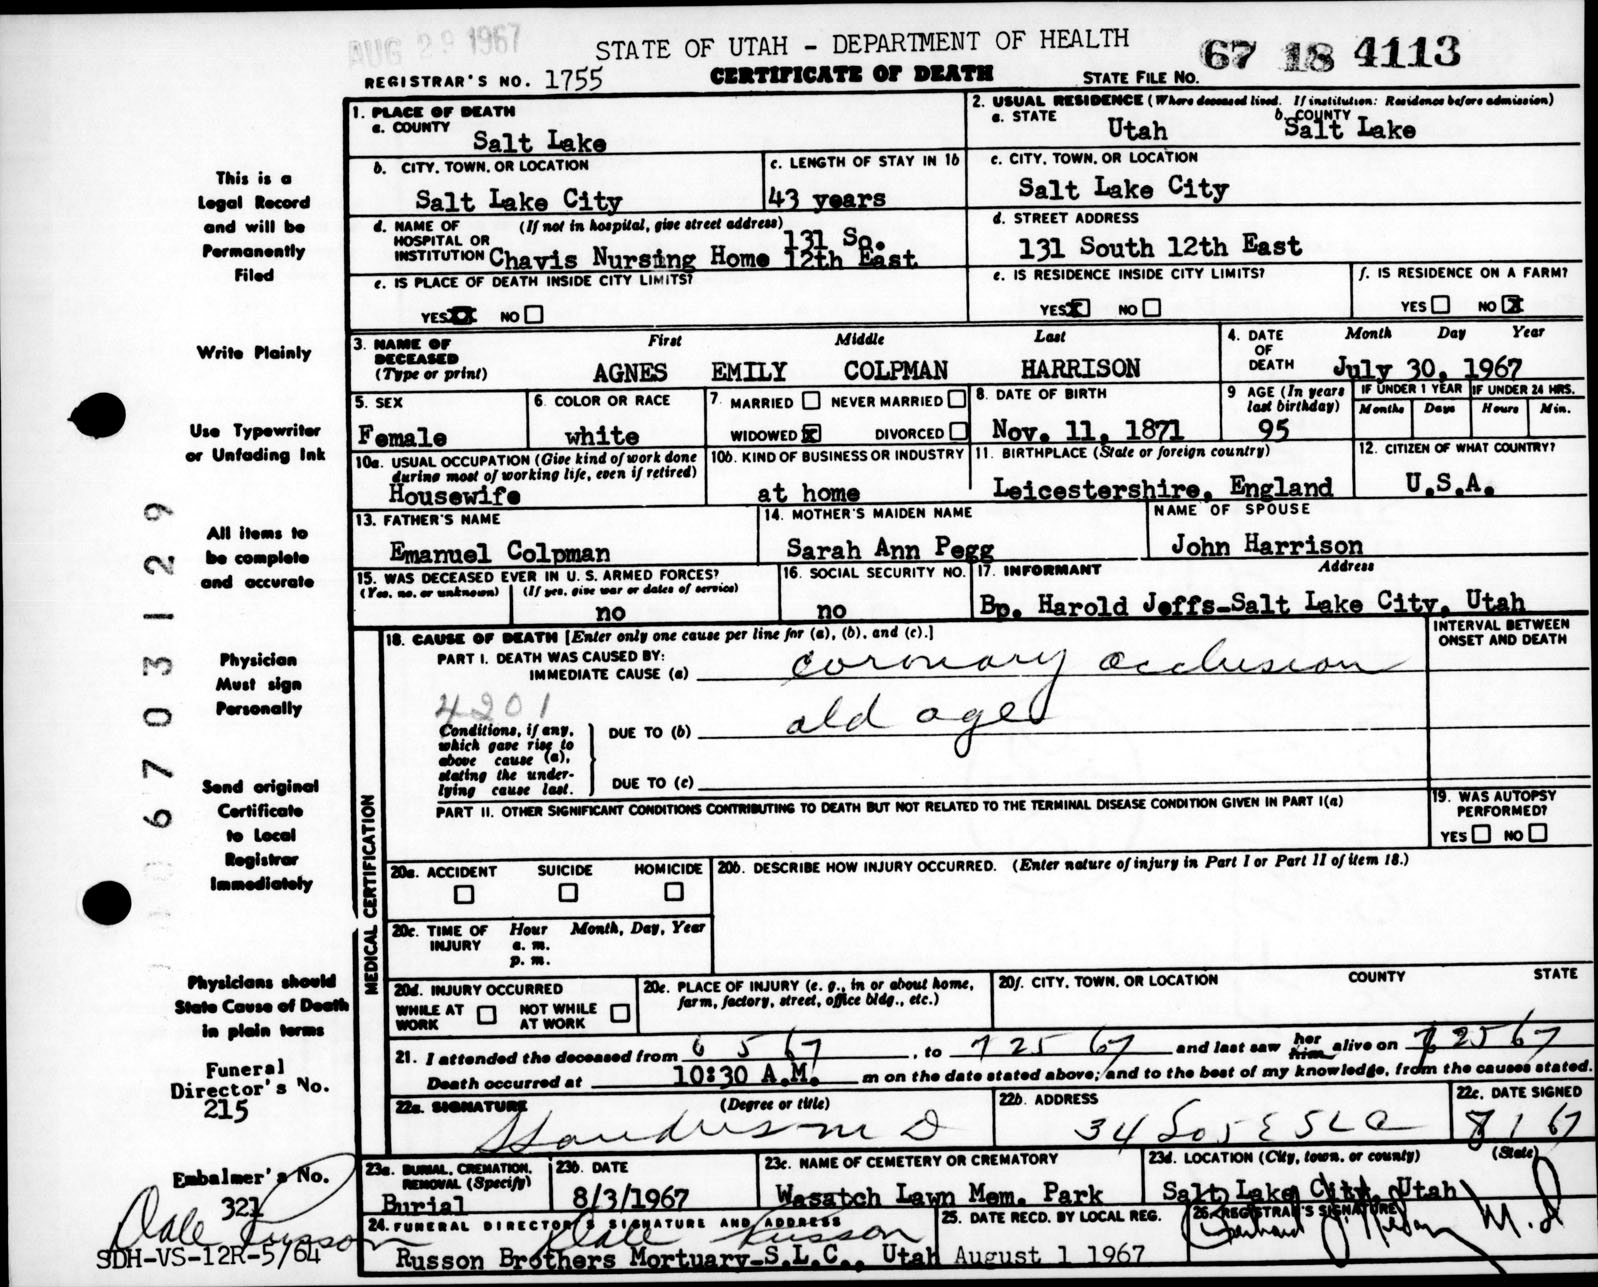 AUG 29 1967
STATE OF UTAH - DEPARTMENT OF HEALTH
67 18 4113
REGISTRAR'S NO. 1755
CERTIFICATE OF DEATH
STATE FILE NO.
1. PLACE OF DEATH
a. COUNTY
Salt Lake
2. USUAL RESIDENCE (Where deceased lived. If institution: Residence before admission)
a. STATE
Utah
b. COUNTY
Salt Lake
b. CITY, TOWN, OR LOCATION
Salt Lake City
c. LENGTH OF STAY IN 1b
43 years
c. CITY, TOWN, OR LOCATION
Salt Lake City
d. NAME OF HOSPITAL OR INSTITUTION
(If not in hospital, give street address)
Chavis Nursing Home
131 So.
12th East
d. STREET ADDRESS
131 South 12th East
e. IS PLACE OF DEATH INSIDE CITY LIMITS?
YES NO
e. IS RESIDENCE INSIDE CITY LIMITS?
YES NO
f. IS RESIDENCE ON A FARM?
YES NO X
3. NAME OF DECEASED
(Type or print)
First Middle Last
AGNES EMILY COLPMAN HARRISON
4. DATE OF DEATH
Month Day Year
July 30, 1967
5. SEX
Female
6. COLOR OR RACE
white
7. MARRIED NEVER MARRIED
WIDOWED X DIVORCED
8. DATE OF BIRTH
Nov. 11, 1871
9 AGE (In years last birthday)
95
IF UNDER 1 YEAR
Months Days
IF UNDER 24 HRS.
Hours Min.
10a. USUAL OCCUPATION (Give kind of work done during most of working life, even if retired)
Housewife
10b. KIND OF BUSINESS OR INDUSTRY
at home
11. BIRTHPLACE (State or foreign country)
Leicestershire, England
12. CITIZEN OF WHAT COUNTRY?
U.S.A.
13. FATHER'S NAME
Emanuel Colpman
14. MOTHER'S MAIDEN NAME
Sarah Ann Pegg
NAME OF SPOUSE
John Harrison
15. WAS DECEASED EVER IN U.S. ARMED FORCES?
(Yes, no, or unknown) (If yes, give war or dates of service)
no
16. SOCIAL SECURITY NO.
no
17. INFORMANT Address
Bp. Harold Jeffs-Salt Lake City, Utah
MEDICAL CERTIFICATION
18. CAUSE OF DEATH [Enter only one cause per line for (a), (b), and (c).]
INTERVAL BETWEEN ONSET AND DEATH
PART I. DEATH WAS CAUSED BY:
IMMEDIATE CAUSE (a) coronary occlusion
4201
Conditions, if any, which gave rise to above cause (a), stating the underlying cause last.
DUE TO (b) old age
DUE TO (c)
PART II. OTHER SIGNIFICANT CONDITIONS CONTRIBUTING TO DEATH BUT NOT RELATED TO THE TERMINAL DISEASE CONDITION GIVEN IN PART I(a)
19. WAS AUTOPSY PERFORMED?
YES NO
20a. ACCIDENT SUICIDE HOMICIDE
20b. DESCRIBE HOW INJURY OCCURRED. (Enter nature of injury in Part I or Part II of item 18.)
20c. TIME OF INJURY
Hour Month, Day, Year
a. m.
p. m.
20d. INJURY OCCURRED
WHILE AT WORK NOT WHILE AT WORK
20e. PLACE OF INJURY (e. g., in or about home, farm, factory, street, office bldg., etc.)
20f. CITY, TOWN, OR LOCATION COUNTY STATE
21. I attended the deceased from 6 5 67, to 7 25 67 and last saw her him alive on 7 25 67
Death occurred at 10:30 A.M. m on the date stated above; and to the best of my knowledge, from the causes stated.
22a. SIGNATURE (Degree or title)
M D
22b. ADDRESS
34 So 5 E SLC
22c. DATE SIGNED
8 1 67
23a. BURIAL, CREMATION, REMOVAL (Specify)
Burial
23b. DATE
8/3/1967
23c. NAME OF CEMETERY OR CREMATORY
Wasatch Lawn Mem. Park
23d. LOCATION (City, town, or county) (State)
Salt Lake City, Utah
24. FUNERAL DIRECTOR'S SIGNATURE AND ADDRESS
Dale Russon
Russon Brothers Mortuary-S.L.C., Utah
25. DATE RECD. BY LOCAL REG.
August 1 1967
26. REGISTRAR'S SIGNATURE
M.D
This is a
Legal Record
and will be
Permanently
Filed
Write Plainly
Use Typewriter
or Unfading Ink
All items to
be complete
and accurate
Physician
Must sign
Personally
Send original
Certificate
to Local
Registrar
Immediately
Physicians should
State Cause of Death
in plain terms
Funeral
Director's No.
215
Embalmer's No.
321
Dale Russon
SDH-VS-12R-5/64
06703129